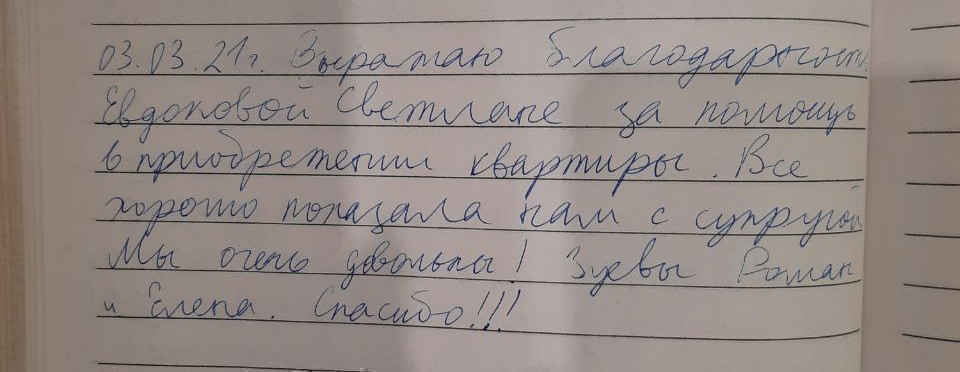 03.03.21г. Выражаю благодарность
Евдоковой Светлане за помощь
в приобретении квартиры. Все
хорошо показала нам с супругой
Мы очень довольны! Зуевы Роман
и Елена. Спасибо!!!